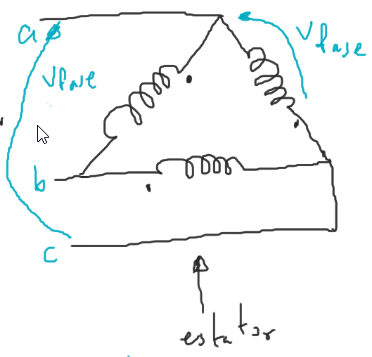 a
Vfase
Vfase
b
c
estator